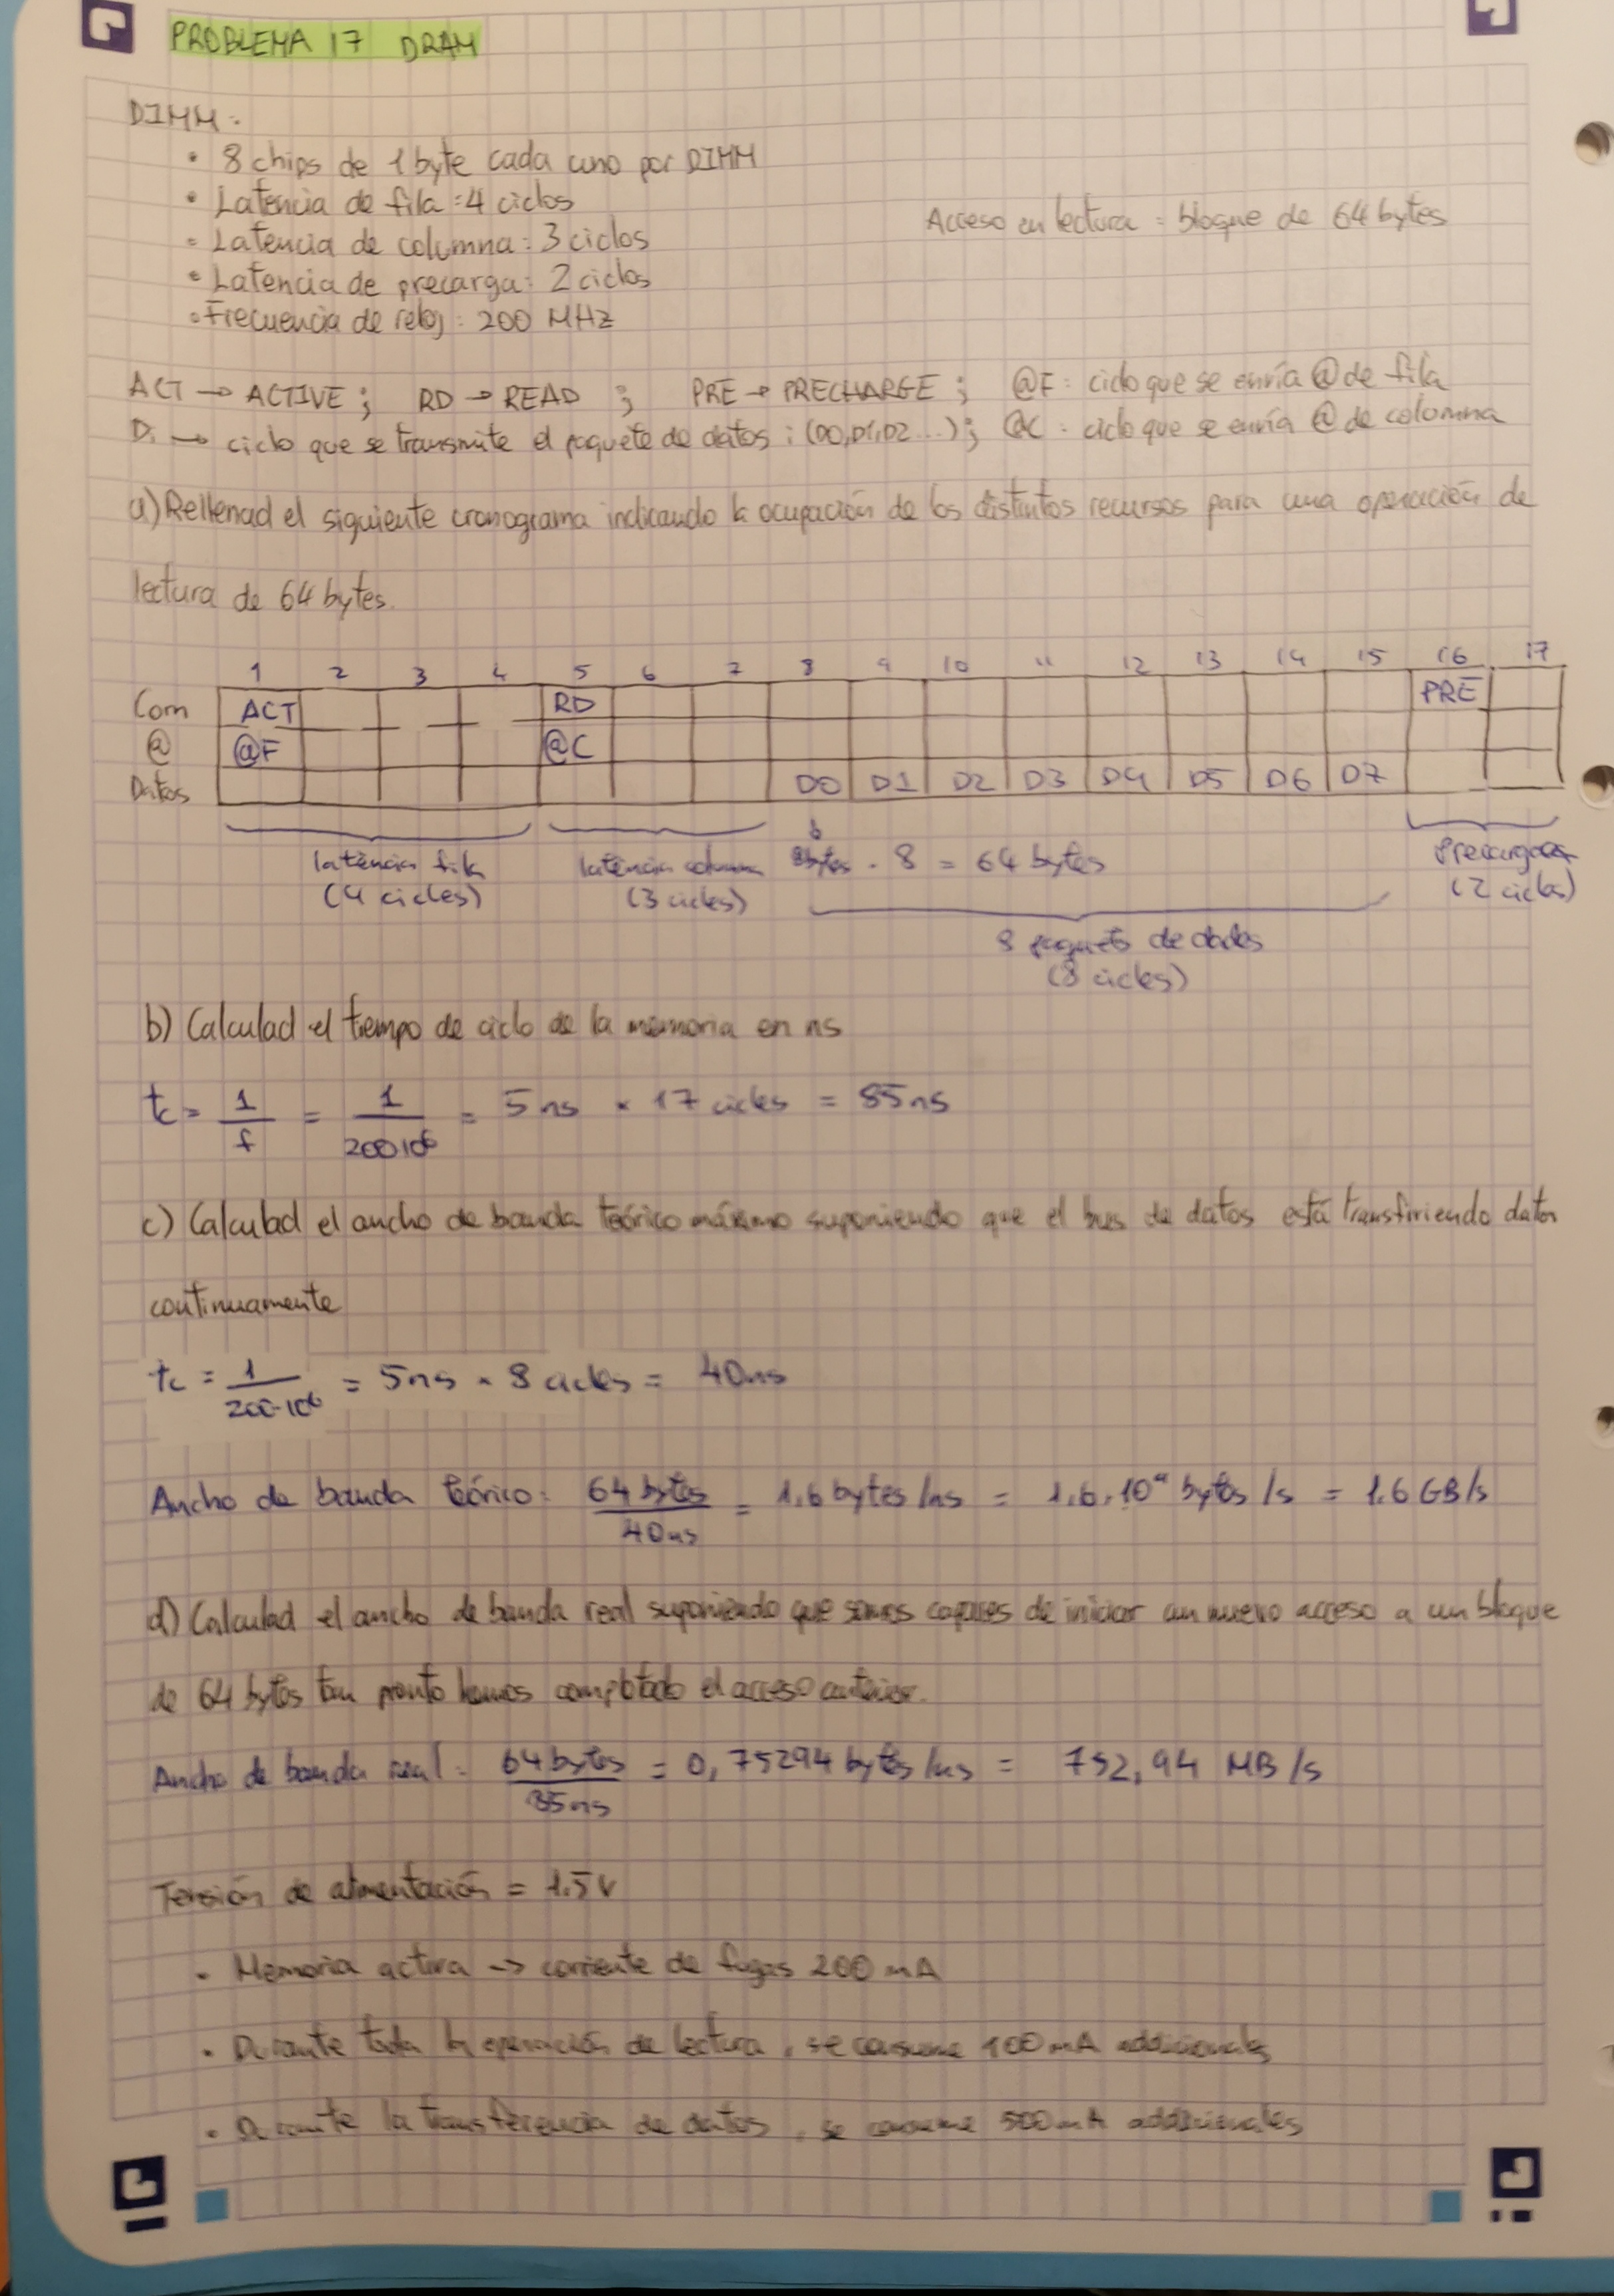 PROBLEMA 17 DRAM
DIMM:
• 8 chips de 1 byte cada uno por DIMM
• Latencia de fila: 4 ciclos
• Latencia de columna: 3 ciclos
Acceso en lectura = bloque de 64 bytes
• Latencia de precarga: 2 ciclos
• Frecuencia de reloj: 200 MHz
ACT → ACTIVE; RD → READ ; PRE → PRECHARGE ; @F: ciclo que se envía @ de fila
Di → ciclo que se transmite el paquete de datos i (D0,D1,D2...); @C: ciclo que se envía @ de columna
a) Rellenad el siguiente cronograma indicando la ocupación de los distintos recursos para una operación de
lectura de 64 bytes.
1 2 3 4 5 6 7 8 9 10 11 12 13 14 15 16 17
Com ACT RD PRE
@ @F @C
Datos D0 D1 D2 D3 D4 D5 D6 D7
latència fila
(4 cicles)
latència columna
(3 cicles)
8 bytes · 8 = 64 bytes
8 paquets de dades
(8 cicles)
(2 cicles)
b) Calculad el tiempo de ciclo de la memoria en ns
tc = 1/f = 1/200·10⁶ = 5ns × 17 cicles = 85ns
c) Calculad el ancho de banda teórico máximo suponiendo que el bus de datos está transfiriendo datos
continuamente
tc = 1/200·10⁶ = 5ns × 8 cicles = 40ns
Ancho de banda teórico: 64 bytes/40ns = 1,6 bytes/ns = 1,6·10⁹ bytes/s = 1.6 GB/s
d) Calculad el ancho de banda real suponiendo que somos capaces de iniciar un nuevo acceso a un bloque
de 64 bytes tan pronto hemos completado el acceso anterior.
Ancho de banda real: 64 bytes/85ns = 0,75294 bytes/ns = 752,94 MB/s
Tensión de alimentación = 1.5V
• Memoria activa → corriente de fugas 200 mA
• Durante toda la operación de lectura, se consume 100 mA addicionales
• Durante la transferencia de datos, se consume 500 mA addicionales